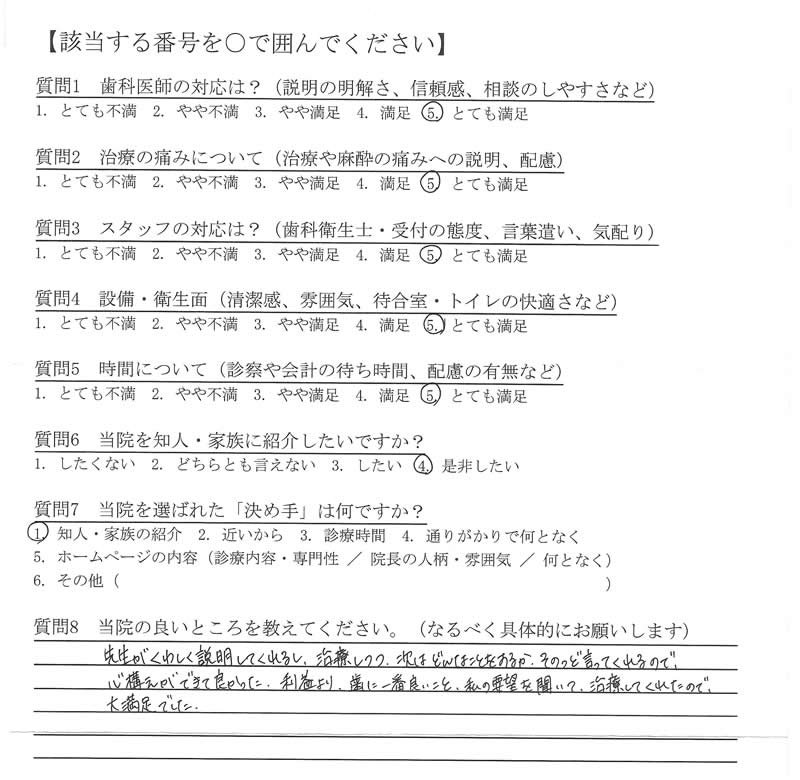 【該当する番号を〇で囲んでください】
質問1　歯科医師の対応は？（説明の明解さ、信頼感、相談のしやすさなど）
1. とても不満　2. やや不満　3. やや満足　4. 満足　5. とても満足
質問2　治療の痛みについて（治療や麻酔の痛みへの説明、配慮）
1. とても不満　2. やや不満　3. やや満足　4. 満足　5. とても満足
質問3　スタッフの対応は？（歯科衛生士・受付の態度、言葉遣い、気配り）
1. とても不満　2. やや不満　3. やや満足　4. 満足　5. とても満足
質問4　設備・衛生面（清潔感、雰囲気、待合室・トイレの快適さなど）
1. とても不満　2. やや不満　3. やや満足　4. 満足　5. とても満足
質問5　時間について（診察や会計の待ち時間、配慮の有無など）
1. とても不満　2. やや不満　3. やや満足　4. 満足　5. とても満足
質問6　当院を知人・家族に紹介したいですか？
1. したくない　2. どちらとも言えない　3. したい　4. 是非したい
質問7　当院を選ばれた「決め手」は何ですか？
1. 知人・家族の紹介　2. 近いから　3. 診療時間　4. 通りがかりで何となく
5. ホームページの内容（診療内容・専門性 ／ 院長の人柄・雰囲気 ／ 何となく）
6. その他（　　　　）
質問8　当院の良いところを教えてください。（なるべく具体的にお願いします）
先生がくわしく説明してくれるし、治療しつつ、次はどんなことをするか、そのつど言ってくれるので、
心構えができて良かった。利益より、歯に一番良いこと、私の要望を聞いて、治療してくれたので、
大満足でした。